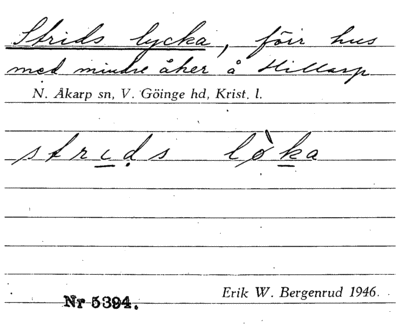 Strids lycka, föir hus
med mindre åker å Hillarp
N. Åkarp sn, V. Göinge hd, Krist. l.
strịds lò̀ka
Nr 5394.
Erik W. Bergenrud 1946.